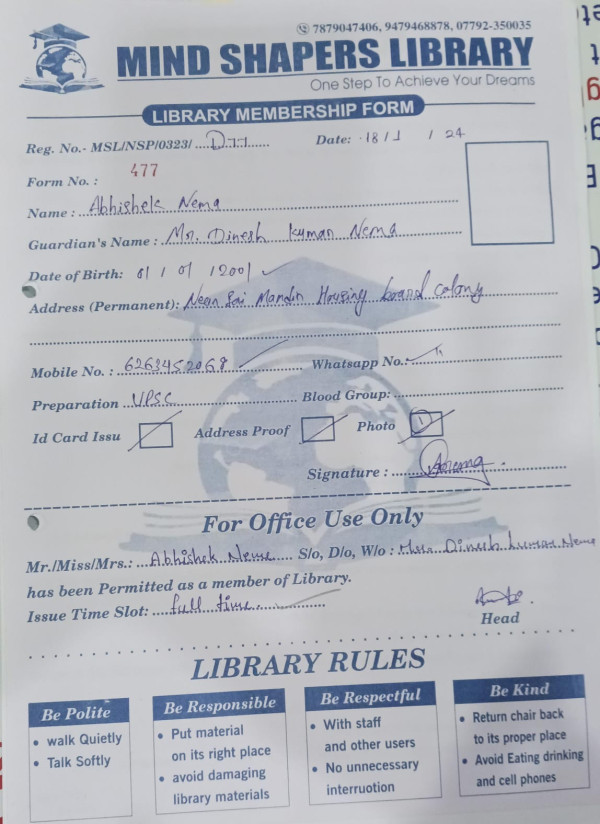 7879047406, 9479468878, 07792-350035
MIND SHAPERS LIBRARY
One Step To Achieve Your Dreams
LIBRARY MEMBERSHIP FORM
Reg. No.- MSL/NSP/0323/ Date: 18/1/24
Form No. : 477
Name : Abhishek Nema
Guardian's Name : Mr. Dinesh kumar Nema
Date of Birth: 01/2001
Address (Permanent): Near Sai Mandir Housing board colony
Mobile No. : 6263452068 Whatsapp No.:
Preparation UPSC Blood Group:
Id Card Issu Address Proof Photo
Signature :
For Office Use Only
Mr./Miss/Mrs.: Abhishek Nema S/o, D/o, W/o : Dinesh kumar Nema
has been Permitted as a member of Library.
Issue Time Slot: full time
Head
LIBRARY RULES
Be Polite
• walk Quietly
• Talk Softly
Be Responsible
• Put material
on its right place
• avoid damaging
library materials
Be Respectful
• With staff
and other users
• No unnecessary
interruotion
Be Kind
• Return chair back
to its proper place
• Avoid Eating drinking
and cell phones